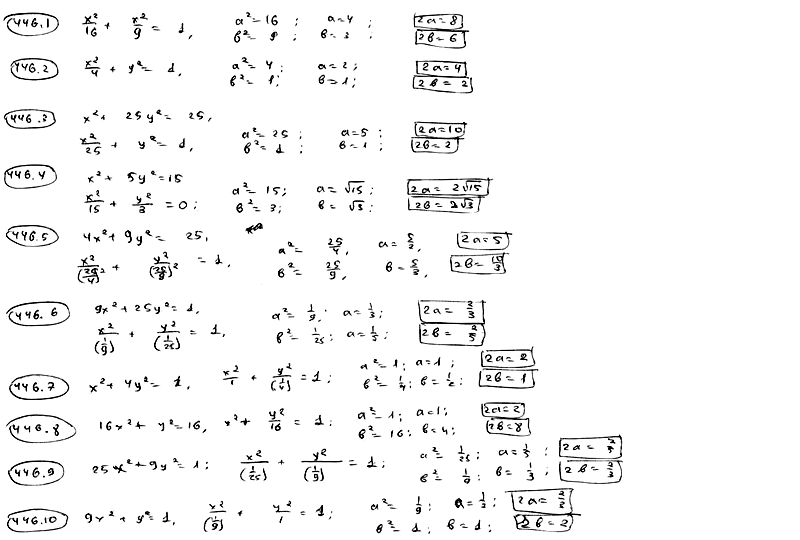 446.1 x²/16 + x²/9 = 1, a²=16 ; a=4 ; 2a=8
b²= 9 ; b= 3 ; 2b= 6
446.2 x²/4 + y²= 1, a²= 4 ; a= 2 ; 2a=4
b²= 1 ; b=1 ; 2b = 2
446.3 x²+ 25y²= 25,
x²/25 + y²= 1, a²= 25 ; a=5 ; 2a=10
b²= 1 ; b=1 ; 2b= 2
446.4 x²+ 5y²=15
x²/15 + y²/3 = 0 ; a²= 15 ; a= √15 ; 2a= 2√15
b²= 3 ; b= √3 ; 2b= 2√3
446.5 4x²+9y²= 25,
x²/(25/4)² + y²/(25/9)² = 1, a²= 25/4, a= 5/2, 2a=5
b²= 25/9, b= 5/3, 2b= 10/3
446.6 9x²+25y²=1,
x²/(1/9) + y²/(1/25) = 1, a²= 1/9, a= 1/3 ; 2a= 2/3
b²= 1/25 ; a= 1/5 ; 2b= 2/5
446.7 x²+ 4y²= 1, x²/1 + y²/(1/4) = 1 ; a²= 1 ; a=1 ; 2a= 2
b²= 1/4 ; b= 1/2 ; 2b= 1
446.8 16x²+ y²=16, x²+ y²/16 = 1 ; a²= 1 ; a=1 ; 2a=2
b²= 16 ; b=4 ; 2b=8
446.9 25x²+9y²=1 ; x²/(1/25) + y²/(1/9) = 1 ; a²= 1/25 ; a= 1/5 ; 2a= 2/5
b²= 1/9 ; b= 1/3 ; 2b= 2/3
446.10 9x²+ y²=1, x²/(1/9) + y²/1 = 1 ; a²= 1/9 ; a= 1/3 ; 2a= 2/3
b²= 1 ; b=1 ; 2b= 2